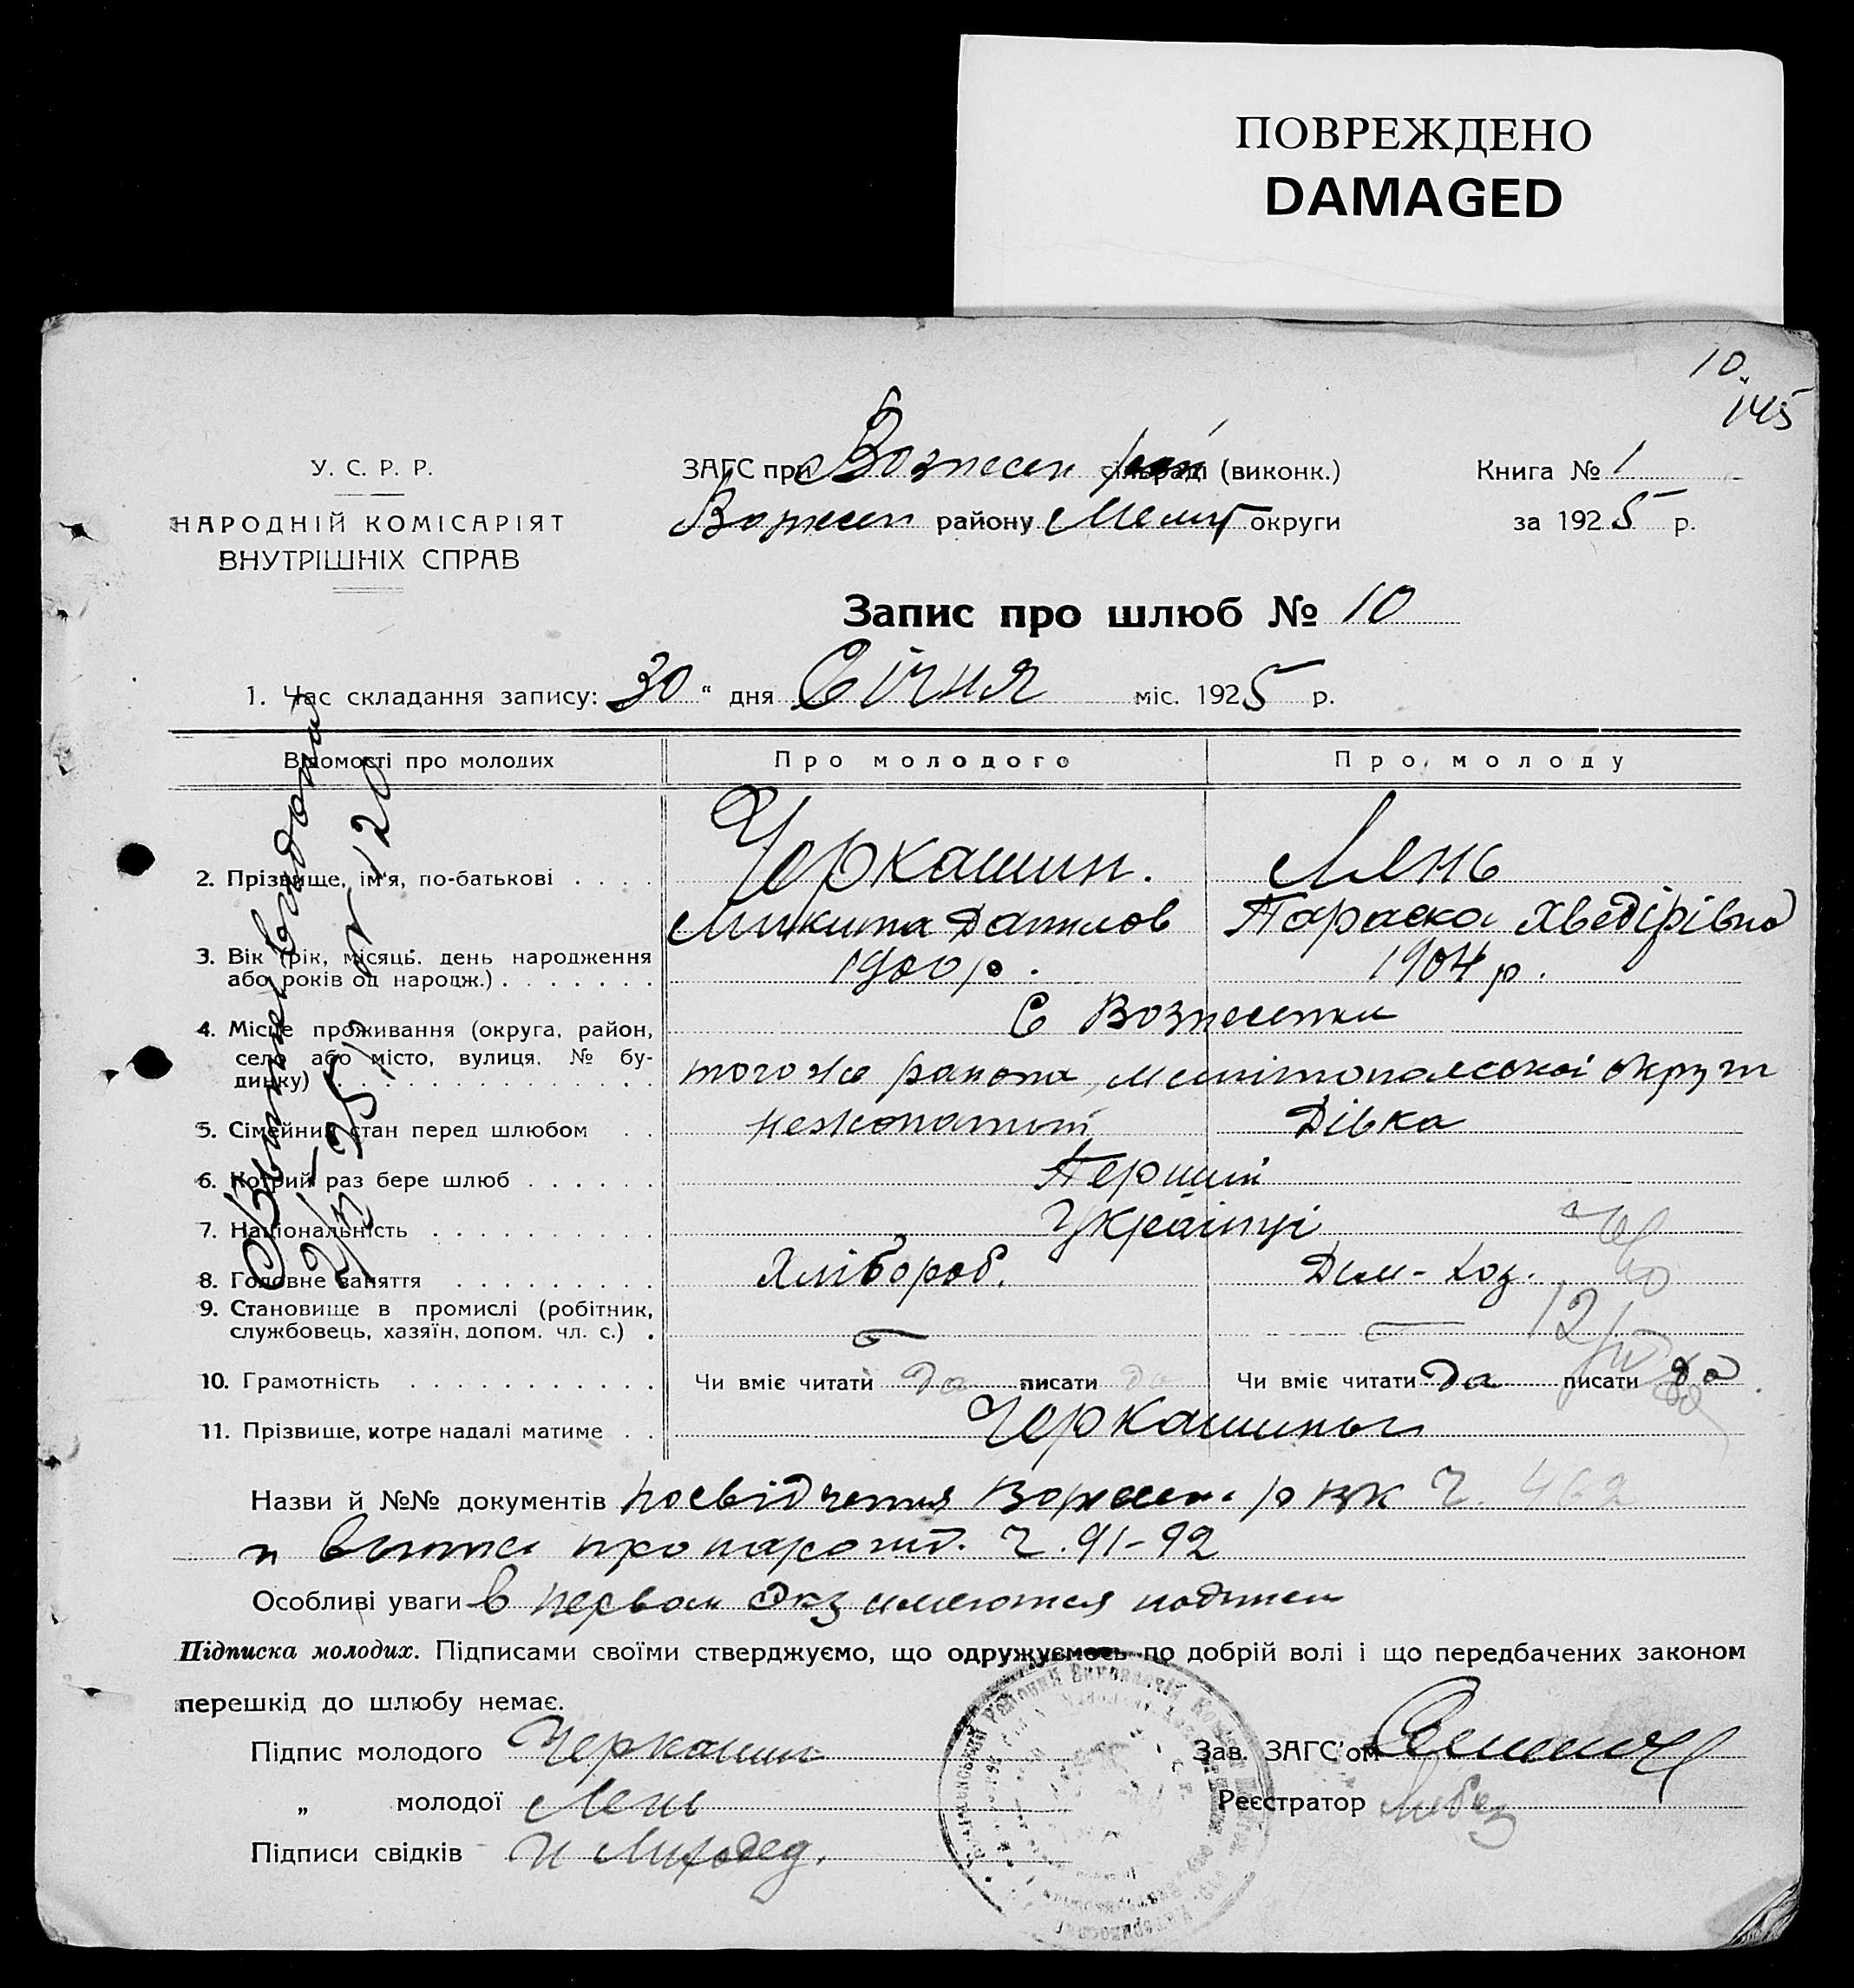 ПОВРЕЖДЕНО
DAMAGED
10.
145
У. С. Р. Р.
НАРОДНІЙ КОМІСАРІЯТ
ВНУТРІШНІХ СПРАВ
ЗАГС при Вознесен рай сільраді (виконк.)
Вознесен району Меліт округи
Книга № 1
за 1925 р.
Запис про шлюб № 10
1. Час складання запису: 30 " дня Січня міс. 1925 р.
Відомості про молодих
Про молодого
Про молоду
2. Прізвище, ім'я, по-батькові . . . .
Черкашин.
Лень
Микита Данилов
Параска Хведірівна
3. Вік (рік, місяць, день народження
або років од народж.) . . . . . . .
1900 р.
1904 р.
4. Місце проживання (округа, район,
село або місто, вулиця, № бу-
динку) . . . . . . . . . . . . . .
С Вознесенки
того же района, мелітопольської округи
5. Сімейний стан перед шлюбом . .
нежонатий
Дівка
6. Котрий раз бере шлюб . . . . . .
Перший
7. Національність . . . . . . . . . .
Українці
8. Головне заняття . . . . . . . . .
Хлібороб.
Дом-хоз.
9. Становище в промислі (робітник,
службовець, хазяїн, допом. чл. с.) .
10. Грамотність . . . . . . . . . . .
Чи вміє читати да писати да
Чи вміє читати да писати да
11. Прізвище, котре надалі матиме . .
Черкашины
Назви й №№ документів посвідчення Вознесен. рвк Ч. 462
и выписи про нарожд. Ч. 91-92
Особливі уваги в первом экз имеются подписи
Підписка молодих. Підписами своїми стверджуємо, що одружуємось по добрій волі і що передбачених законом
перешкід до шлюбу немає.
Підпис молодого Черкашин
Зав. ЗАГС'ом
„ молодої Лень
Реєстратор
Підписи свідків И Лиходед.